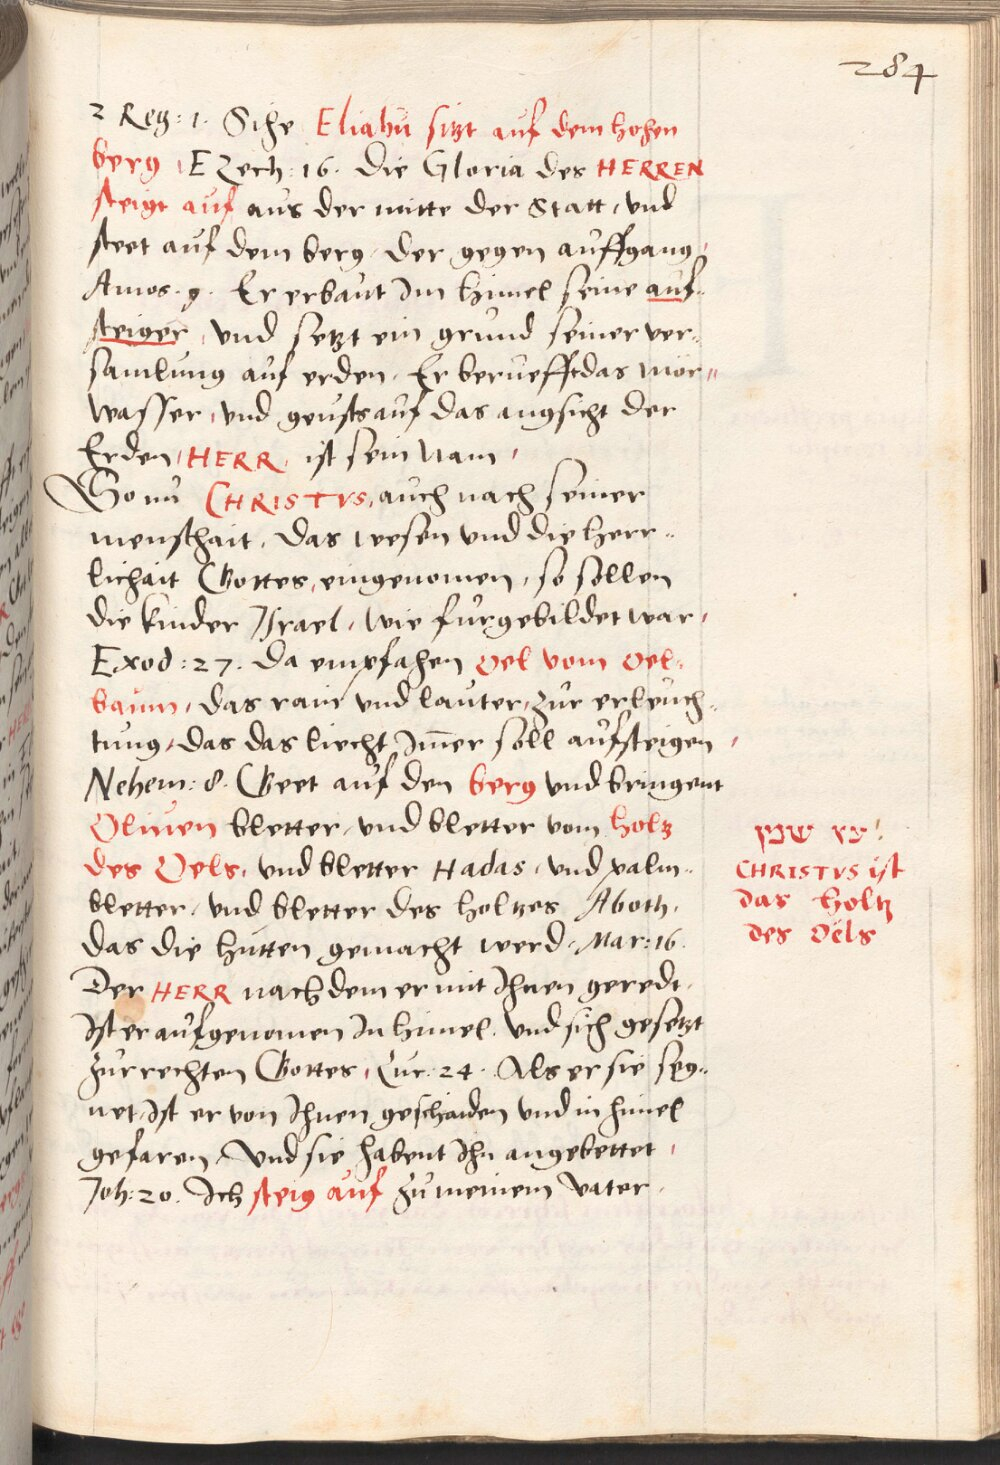 284
2 Reg: 1. Sihe Eliahu sitzt auf dem hohen
berg, Ezech: 16. Die Gloria des HERREN
steigt auf aus der mitte der Statt, vnd
steet auf dem berg, der gegen auffgang,
Amos. 9. Er erbaut Im himel seine auf-
steiger, vnd setzt ein grund seiner ver-
samlung auf erden, Er beruefft das mör-
wasser, vnd geusts auf das angsicht der
Erden, HERR, ist sein Nam,
So nu CHRISTVS, auch nach seiner
menschait, das wesen vnd die herr-
lichait Gottes, eingenomen, so sollen
die kinder Israel, wie furgebildet war,
Exod: 27. Da empfahen oel vom oel-
baum, das rain vnd lauter, zur erleuch-
tung, das das liecht Imer soll aufsteigen,
Nehem: 8. Geet auf den berg vnd bringent
Oliuen bletter, vnd bletter vom holtz
des Oels, vnd bletter Hadas, vnd palm-
bletter, vnd bletter des holtzes Aboth,
das die hutten gemacht werd, Mar: 16.
Der HERR nach dem er mit Ihnen geredt,
Ist er aufgenomen In himel, vnd sich gesetzt
zur rechten Gottes, Luc: 24. Als er sie seg-
net, Ist er von Ihnen geschaiden vnd in himel
gefaren, Vnd sie habent Ihn angebettet,
Joh: 20. Ich steig auf zu meinem vater,
עץ שמן
CHRISTVS ist
das holtz
des Oels